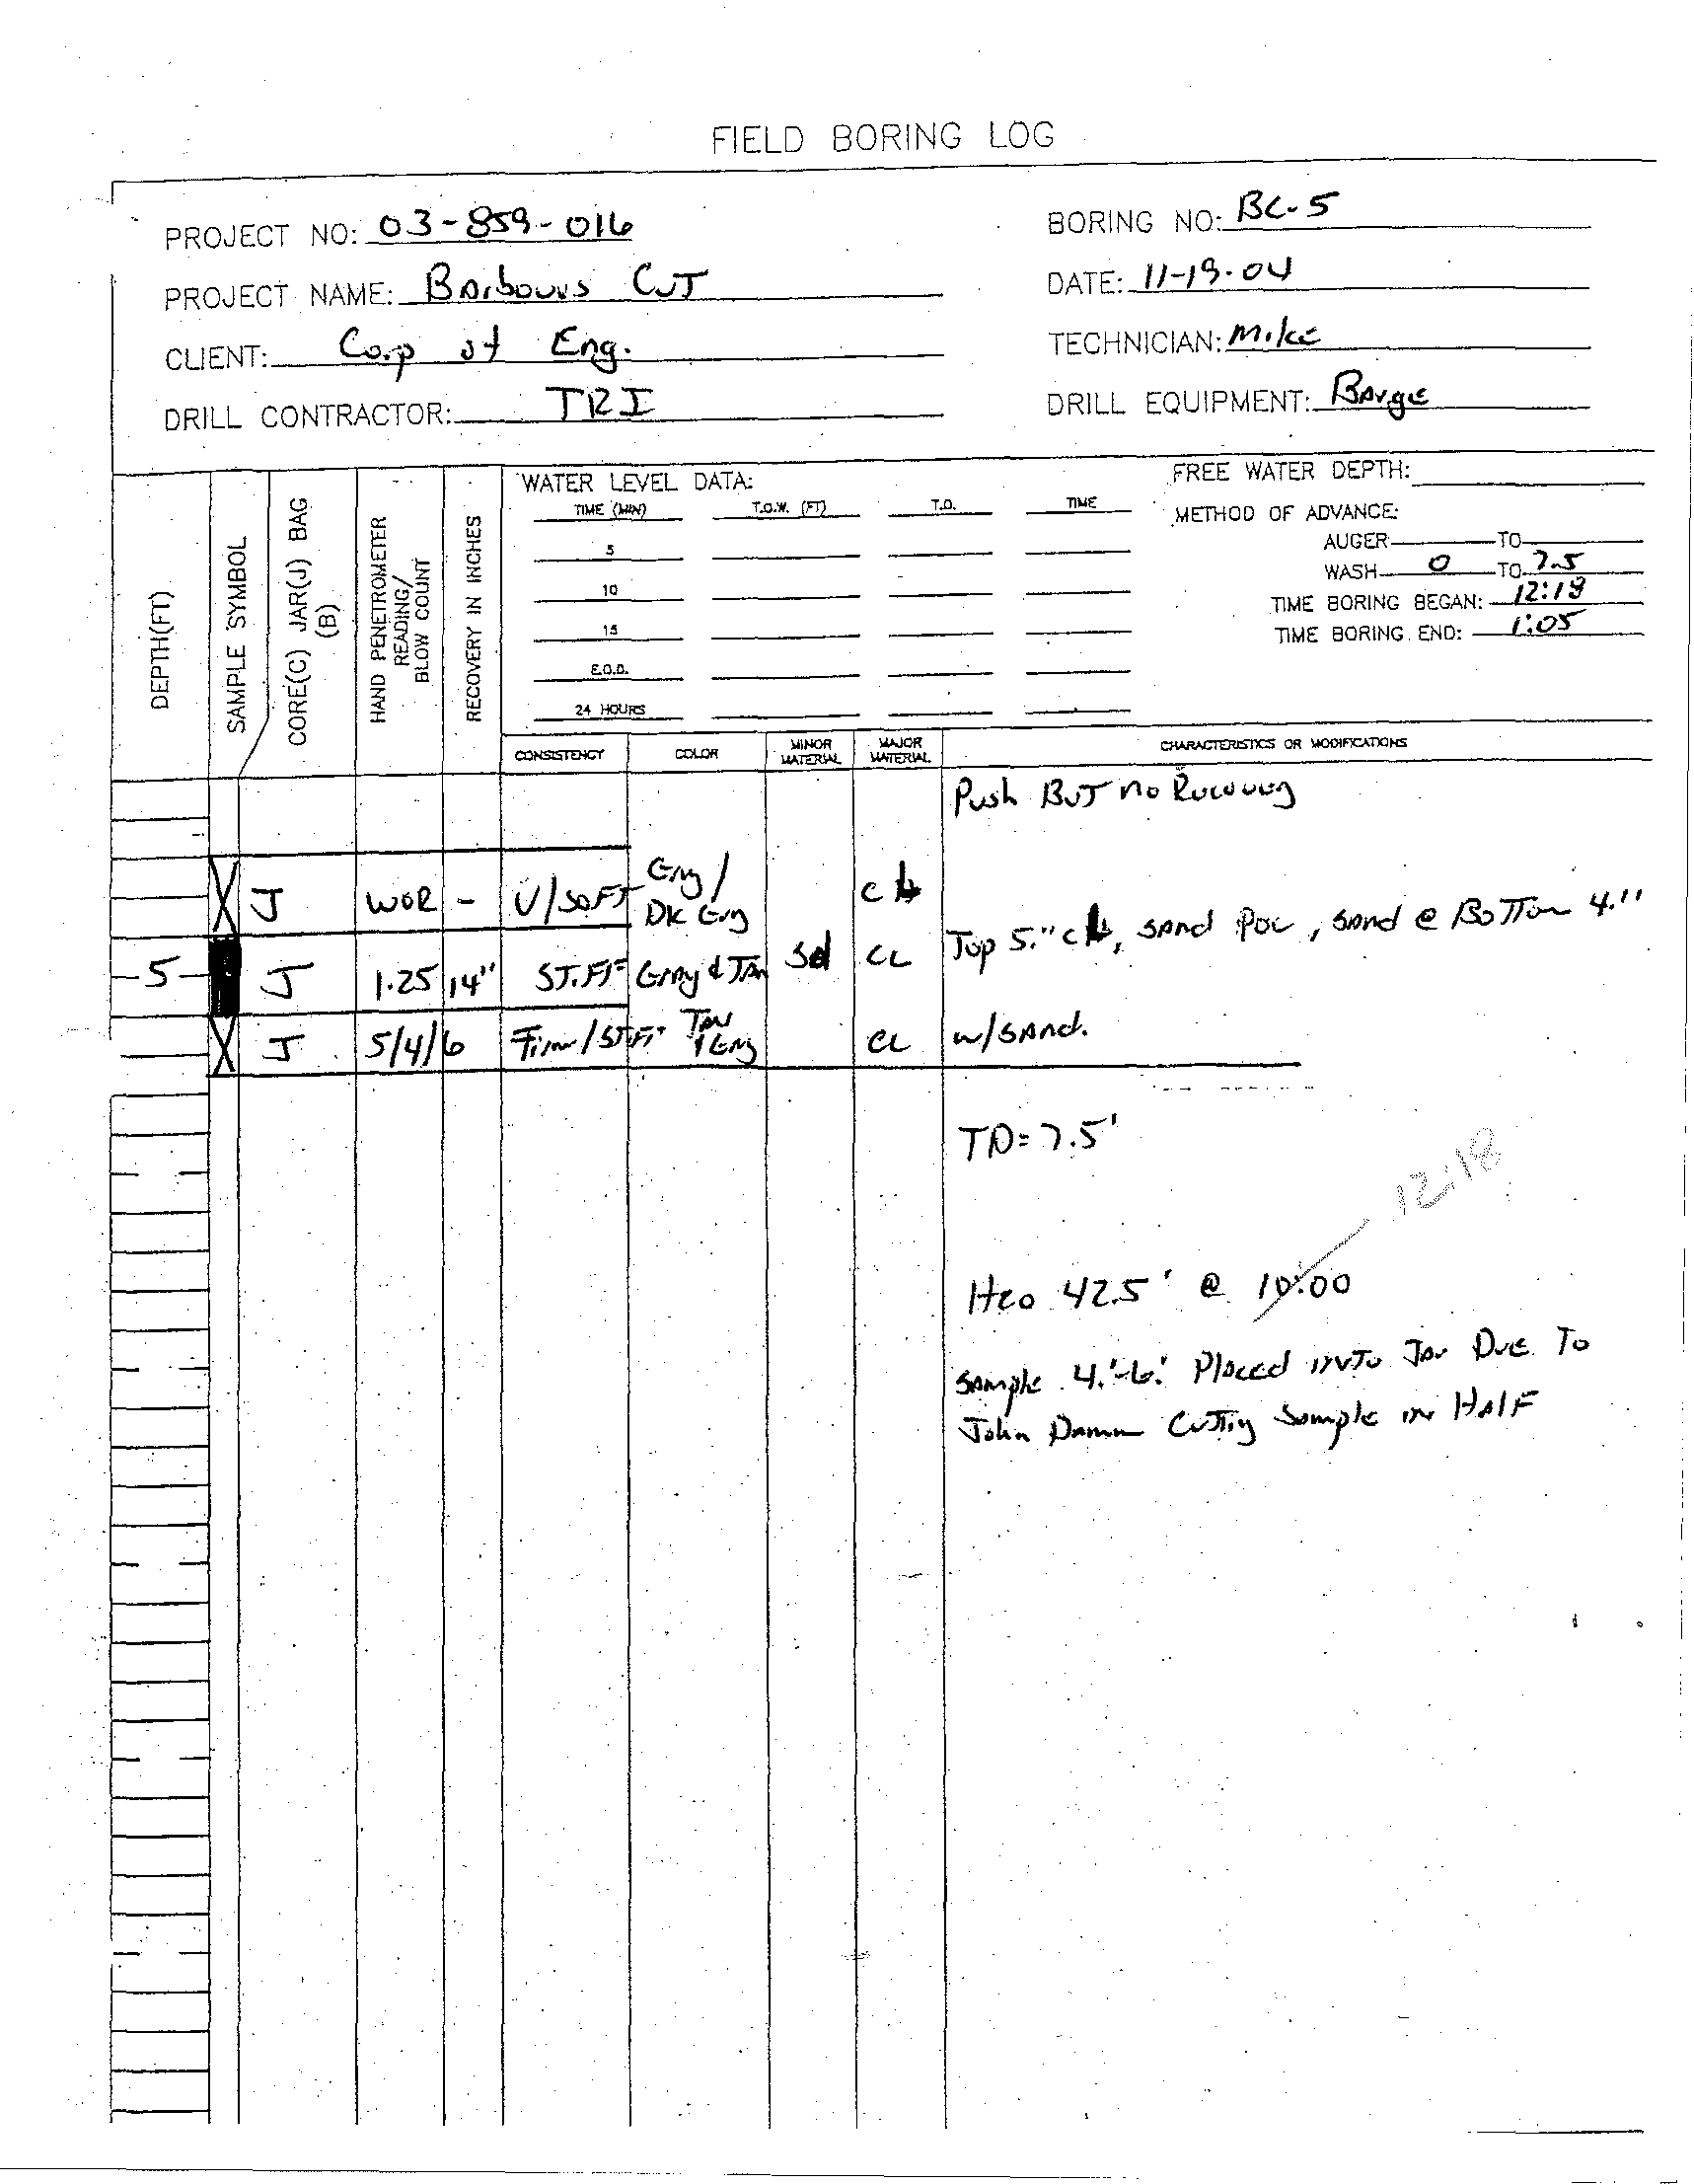 FIELD BORING LOG
PROJECT NO: 03-859-016
BORING NO: BC-5
PROJECT NAME: Barbours CUT
DATE: 11-19-04
CLIENT: Corp of Eng.
TECHNICIAN: Mike
DRILL CONTRACTOR: TRI
DRILL EQUIPMENT: Barge
DEPTH(FT)
SAMPLE SYMBOL
CORE(C) JAR(J) BAG (B)
HAND PENETROMETER READING/ BLOW COUNT
RECOVERY IN INCHES
WATER LEVEL DATA:
TIME (MIN) T.O.W. (FT) T.D. TIME
5
10
15
E.O.D.
24 HOURS
FREE WATER DEPTH:
METHOD OF ADVANCE:
AUGER TO
WASH 0 TO 7.5
TIME BORING BEGAN: 12:18
TIME BORING END: 1:05
CONSISTENCY COLOR MINOR MATERIAL MAJOR MATERIAL CHARACTERISTICS OR MODIFICATIONS
Push BUT no Recovery
J WOR - V/SOFT Gry / DK Gry CH
Top 5." CH, sand Poc, sand @ BoTTom 4."
5 J 1.25 14" STiFF Gray & TAN Sd CL
J 5/4/6 Firm/STiFF Tan / Gry CL w/SAnd.
TD= 7.5'
12:18
H20 42.5' @ 10:00
Sample 4.'-6.' Placed inTo Jar Due To
John Damm CuTTing Sample in HAlF